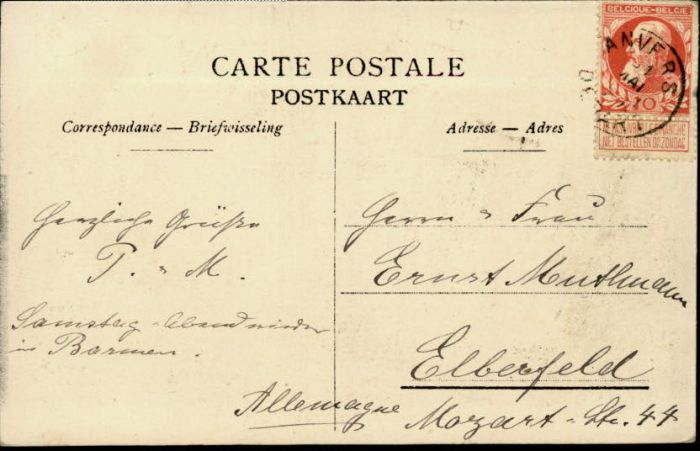 BELGIQUE-BELGIE
ANVERS
MAI
10
NET BESTELLEN OP ZONDAG
CARTE POSTALE
POSTKAART
Correspondance — Briefwisseling
Adresse — Adres
Herzliche Grüße
P. u M.
Samstag-Abend wieder
in Barmen.
Herrn u Frau
Ernst Muthmann
Elberfeld
Mozart-Str. 44
Allemagne